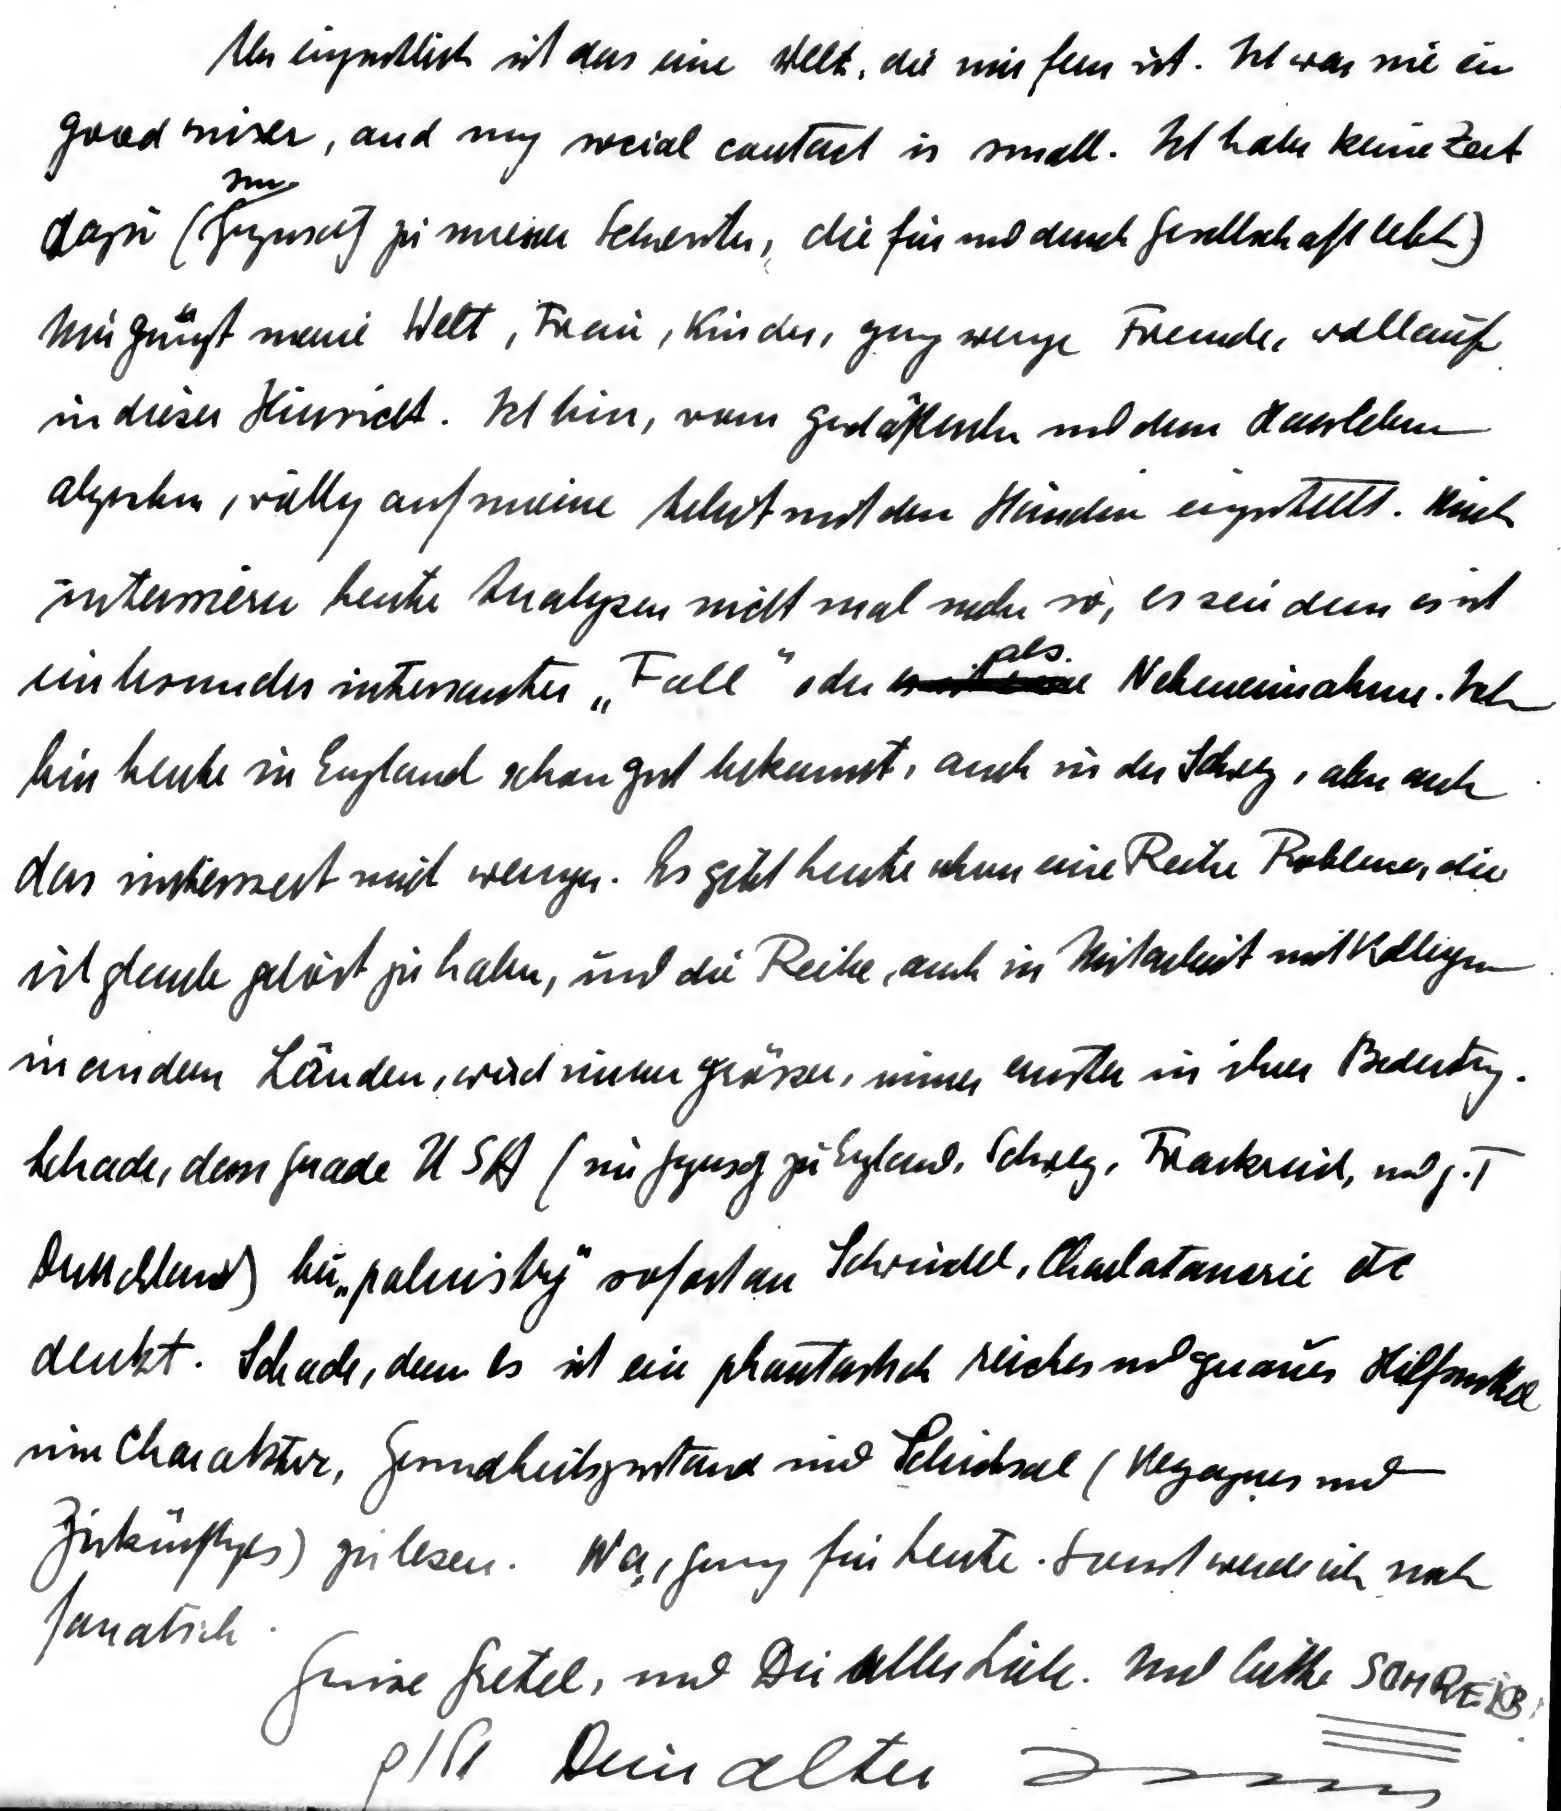 eigentlich ist das eine Welt, die mir fern ist. Ich war nie ein
good mixer, and my social contact is small. Ich habe keine Zeit
dazu (im Gegensatz zu meiner Schwester, die für und durch Gesellschaft lebt)
Mir genügt meine Welt, Frau, Kinder, ganz wenige Freunde, vollauf
in dieser Hinsicht. Ich bin, vom Geschäftlichen und dem
abgesehen, völlig auf meine Arbeit mit den Händen eingestellt. Mich
interessieren heute Analysen nicht mal mehr so, es sei denn es ist
ein besonders interessanter „Fall" oder als Nebeneinnahme. Ich
bin heute in England schon gut bekannt, auch in der Schweiz, aber auch
das interessiert mich weniger. Es gibt heute schon eine Reihe Probleme, die
ich glaube gelöst zu haben, und die Reihe, auch in Mitarbeit mit Kollegen
in andern Ländern, wird immer grösser, immer ernster in ihrer Bedeutung.
Schade, dass grade USA (im Gegensatz zu England, Schweiz, Frankreich, und z.T
Deutschland) bei „palmistry" sofort an Schwindel, Charlatanerie etc
denkt. Schade, denn es ist ein phantastisch reiches und genaues Hilfsmittel
um Charakter, Gesundheitszustand und Schicksal (Vergangnes und
Zukünftiges) zu lesen. Na, genug für heute. Sonst werde ich noch
fanatisch.
Grüsse Gretel, und Dir alles Liebe. Und bitte SCHREIB!
Dein alter